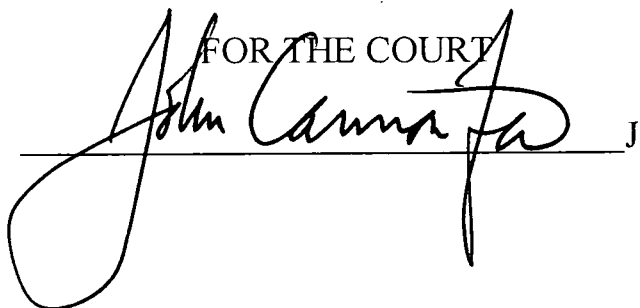 FOR THE COURT
John Cannon J